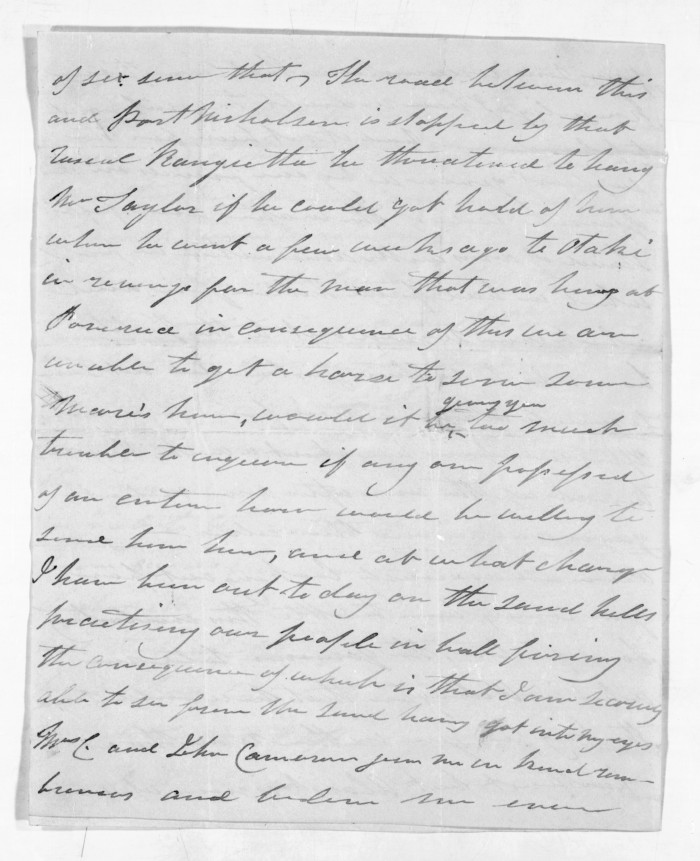 of se. since that, The road between this
and Port Nicholson is stopped by that
rascal Rangietta he threatened to hang
Mr Taylor if he could got hold of him
when he went a few weeks ago to Otaki
in revenge for the man that was hung at
Porirua in consequence of this we are
unable to get a horse to serve some
Mares here, would it be giving you too much
trouble to enquire if any one possessed
of an entire horse would be willing to
send him here, and at what charge
I have been out to day on the sand hills
practising our people in ball firing
the consequence of which is that I am scarcely
able to see from the sand having got into my eyes
Mrs C. and John Cameron join me in kind rem-
brances and believe me ever